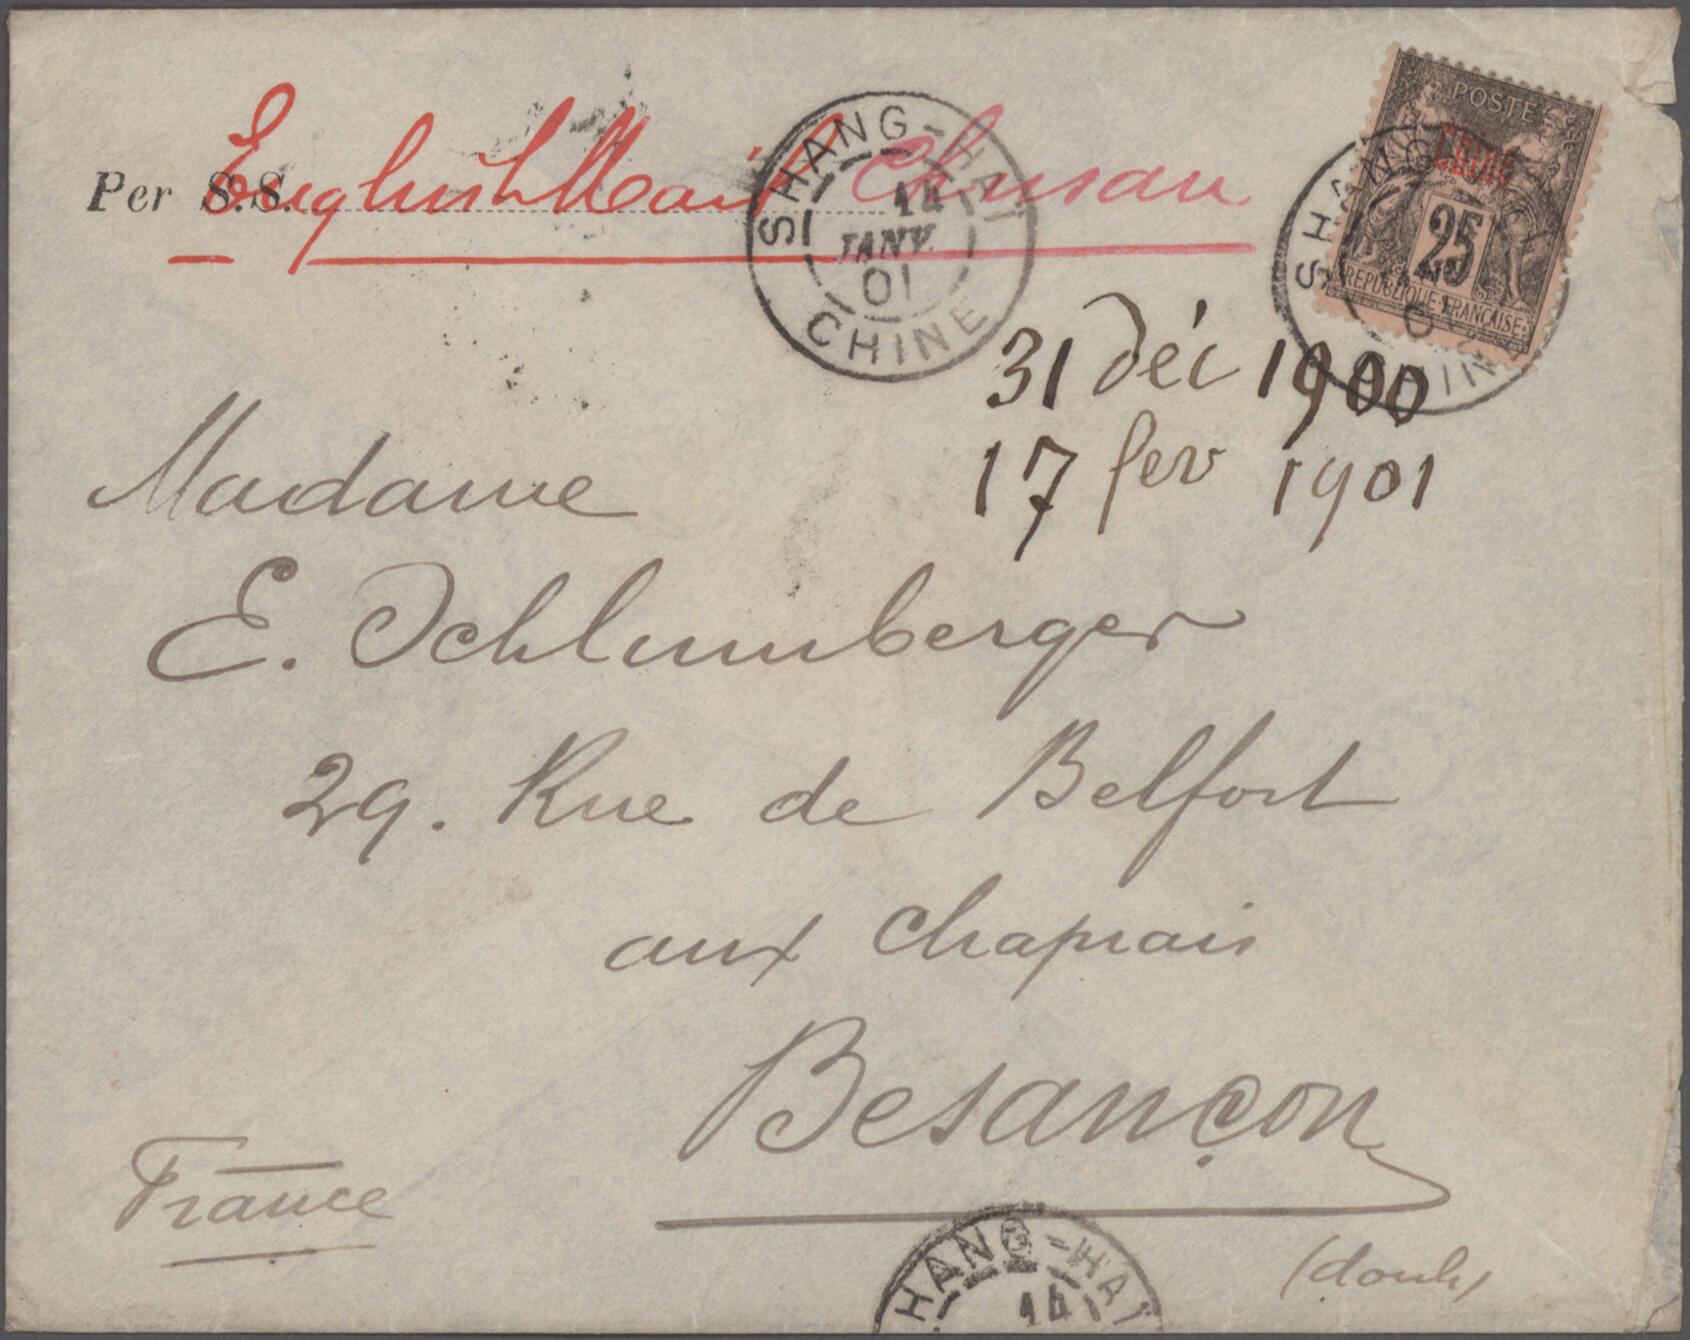 POSTES
CHINE
25
REPUBLIQUE FRANCAISE
Per S.S. English Mail Chusan
SHANG-HAI
14
JANV.
01
CHINE
SHANG-HAI
CHINE
31 Déc 1900
17 fev 1901
Madame
E. Schlumberger
29. Rue de Belfort
aux Chaprais
Besançon
France
(doubs)
SHANG-HAI
14